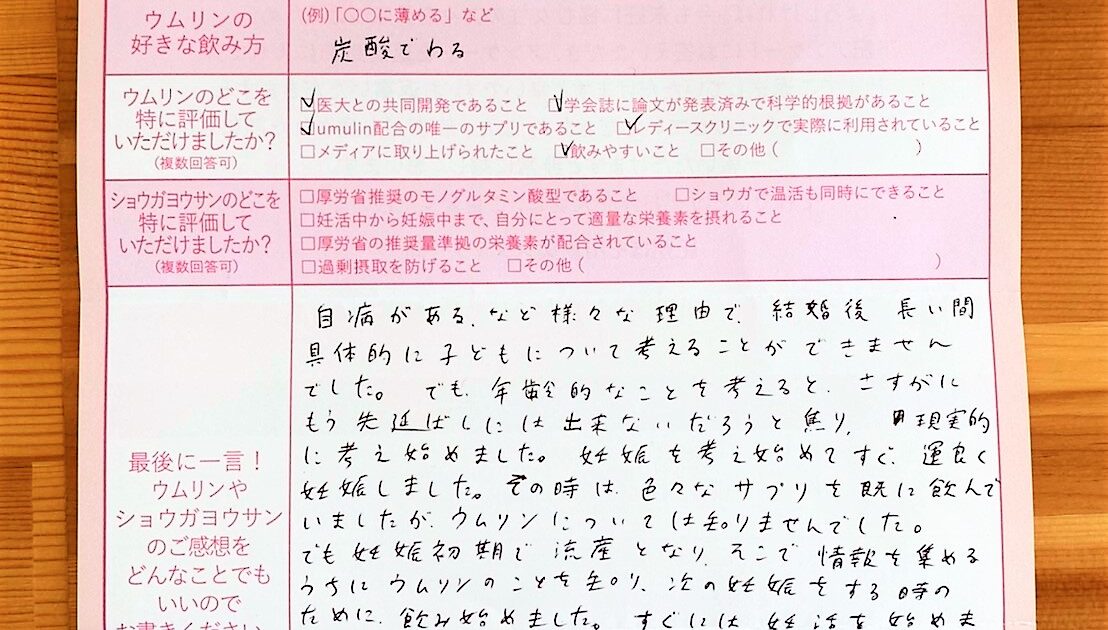 ウムリンの
好きな飲み方
(例)「〇〇に薄める」など
炭酸でわる
ウムリンのどこを
特に評価して
いただけましたか?
(複数回答可)
☑医大との共同開発であること ☑学会誌に論文が発表済みで科学的根拠があること
☑umulin配合の唯一のサプリであること ☑レディースクリニックで実際に利用されていること
□メディアに取り上げられたこと ☑飲みやすいこと □その他( )
ショウガヨウサンのどこを
特に評価して
いただけましたか?
(複数回答可)
□厚労省推奨のモノグルタミン酸型であること □ショウガで温活も同時にできること
□妊活中から妊娠中まで、自分にとって適量な栄養素を摂れること
□厚労省の推奨量準拠の栄養素が配合されていること
□過剰摂取を防げること □その他( )
最後に一言!
ウムリンや
ショウガヨウサン
のご感想を
どんなことでも
いいので
お書きください。
自病がある、など様々な理由で、結婚後 長い間
具体的に子どもについて考えることができません
でした。でも、年齢的なことを考えると、さすがに
もう先延ばしには出来ないだろうと焦り、現実的
に考え始めました。妊娠を考え始めてすぐ、運良く
妊娠しました。その時は、色々なサプリを既に飲んで
いましたが、ウムリンについては知りませんでした。
でも妊娠初期で流産となり、そこで情報を集める
うちにウムリンのことを知り、次の妊娠をする時の
ために、飲み始めました。すぐには妊活を始めま